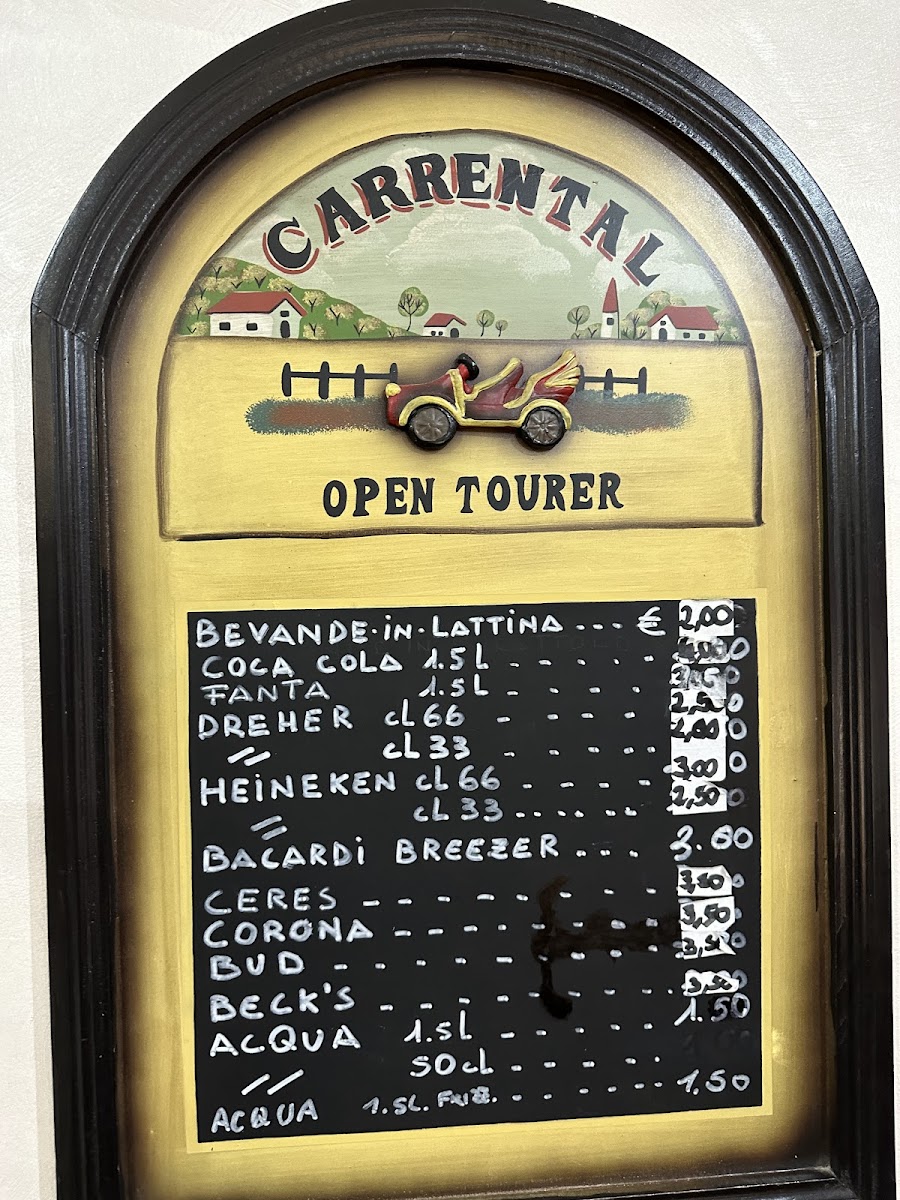 CARRENTAL
OPEN TOURER
BEVANDE·in·LATTINA ... € 2,00
COCA COLA 1.5L - - - - -
FANTA 1.5L - - - - -
DREHER cl 66 - - - - 2,50
〃 cl 33 - - - - - 2,00
HEINEKEN cl 66 - - - - - 3,00
〃 cl 33 ...... 2,50
BACARDI BREEZER ... 3.00
CERES - - - - - - - - 3,50
CORONA - - - - - - - 3,50
BUD - - - - - - - - 3,50
BECK'S - - - - - - - - 3,50
ACQUA 1.5l - - - - - 1.50
〃 50cl - - - - -
ACQUA 1.5L. Frizz. - - - - - - 1,50